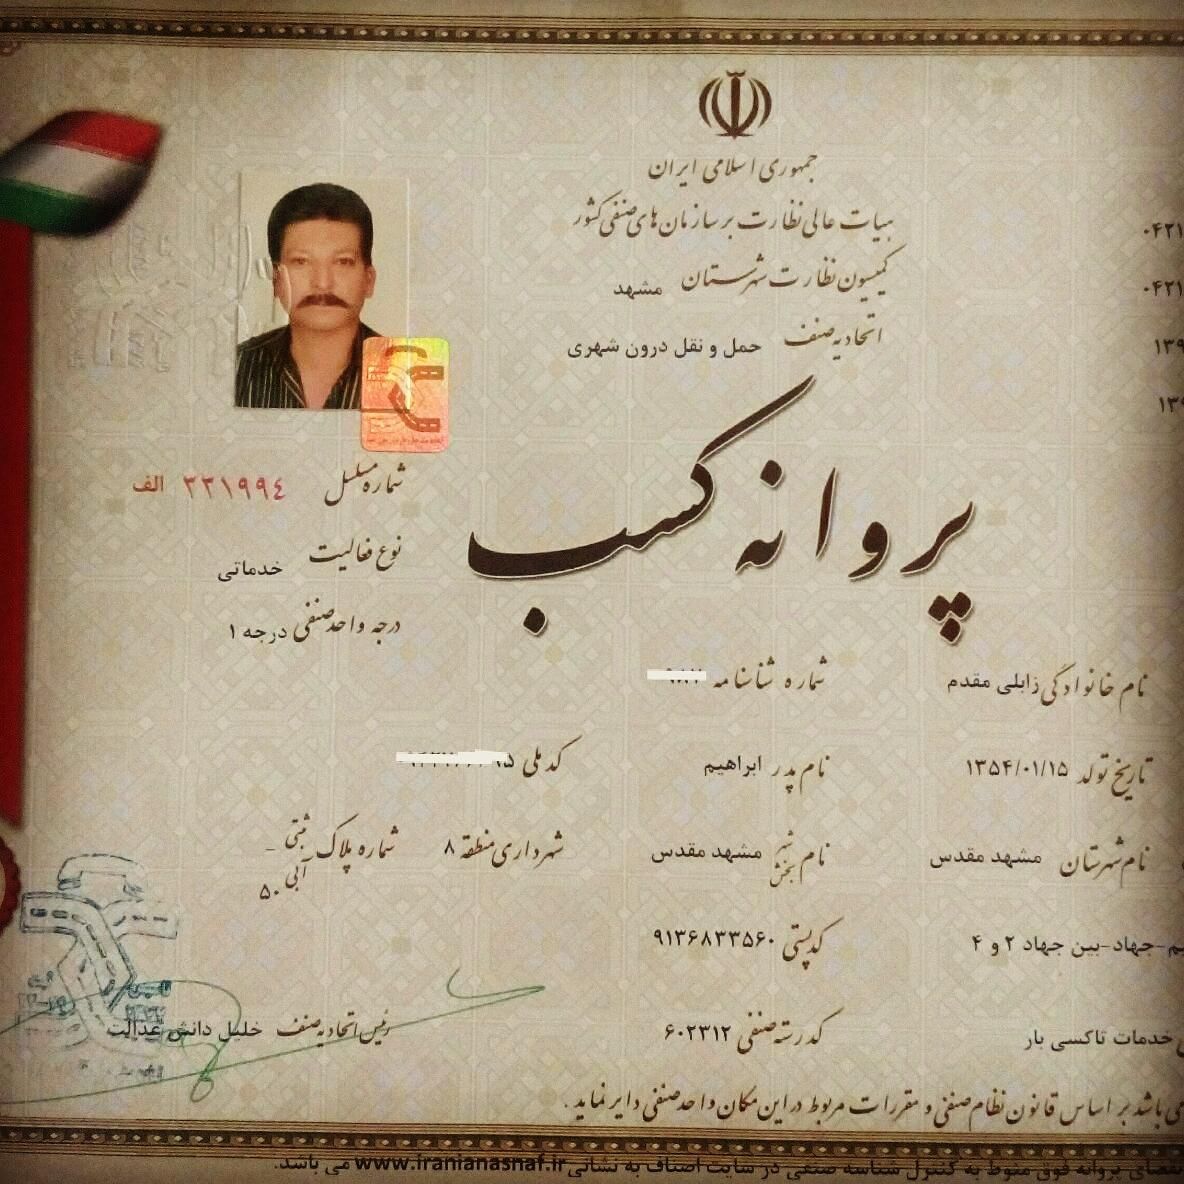 جمهوری اسلامی ایران
هیات عالی نظارت بر سازمان های صنفی کشور
کمیسیون نظارت شهرستان مشهد
اتحادیه صنف حمل و نقل درون شهری
۰۴۲۱
۰۴۲۱
۱۳۹
۱۳۹
پروانه کسب
شماره مسلسل ۳۳۱۹۹۴ الف
نوع فعالیت خدماتی
درجه واحد صنفی درجه ۱
نام خانوادگی زابلی مقدم شماره شناسنامه
تاریخ تولد ۱۳۵۴/۰۱/۱۵ نام پدر ابراهیم کد ملی
نام شهرستان مشهد مقدس نام شهر بخش مشهد مقدس شهرداری منطقه ۸ شماره پلاک ثبتی -
آبی ۵۰
یم-جهاد-بین جهاد ۲ و ۴ کدپستی ۹۱۳۶۸۳۳۵۶۰
خدمات تاکسی بار کد رسته صنفی ۶۰۲۳۱۲ رئیس اتحادیه صنف خلیل دانش عدالت
می باشد بر اساس قانون نظام صنفی و مقررات مربوط در این مکان واحد صنفی دایر نماید .
پروانه فوق منوط به کنترل شناسه صنفی در سایت اصناف به نشانی www.iranianasnaf.ir می باشد.